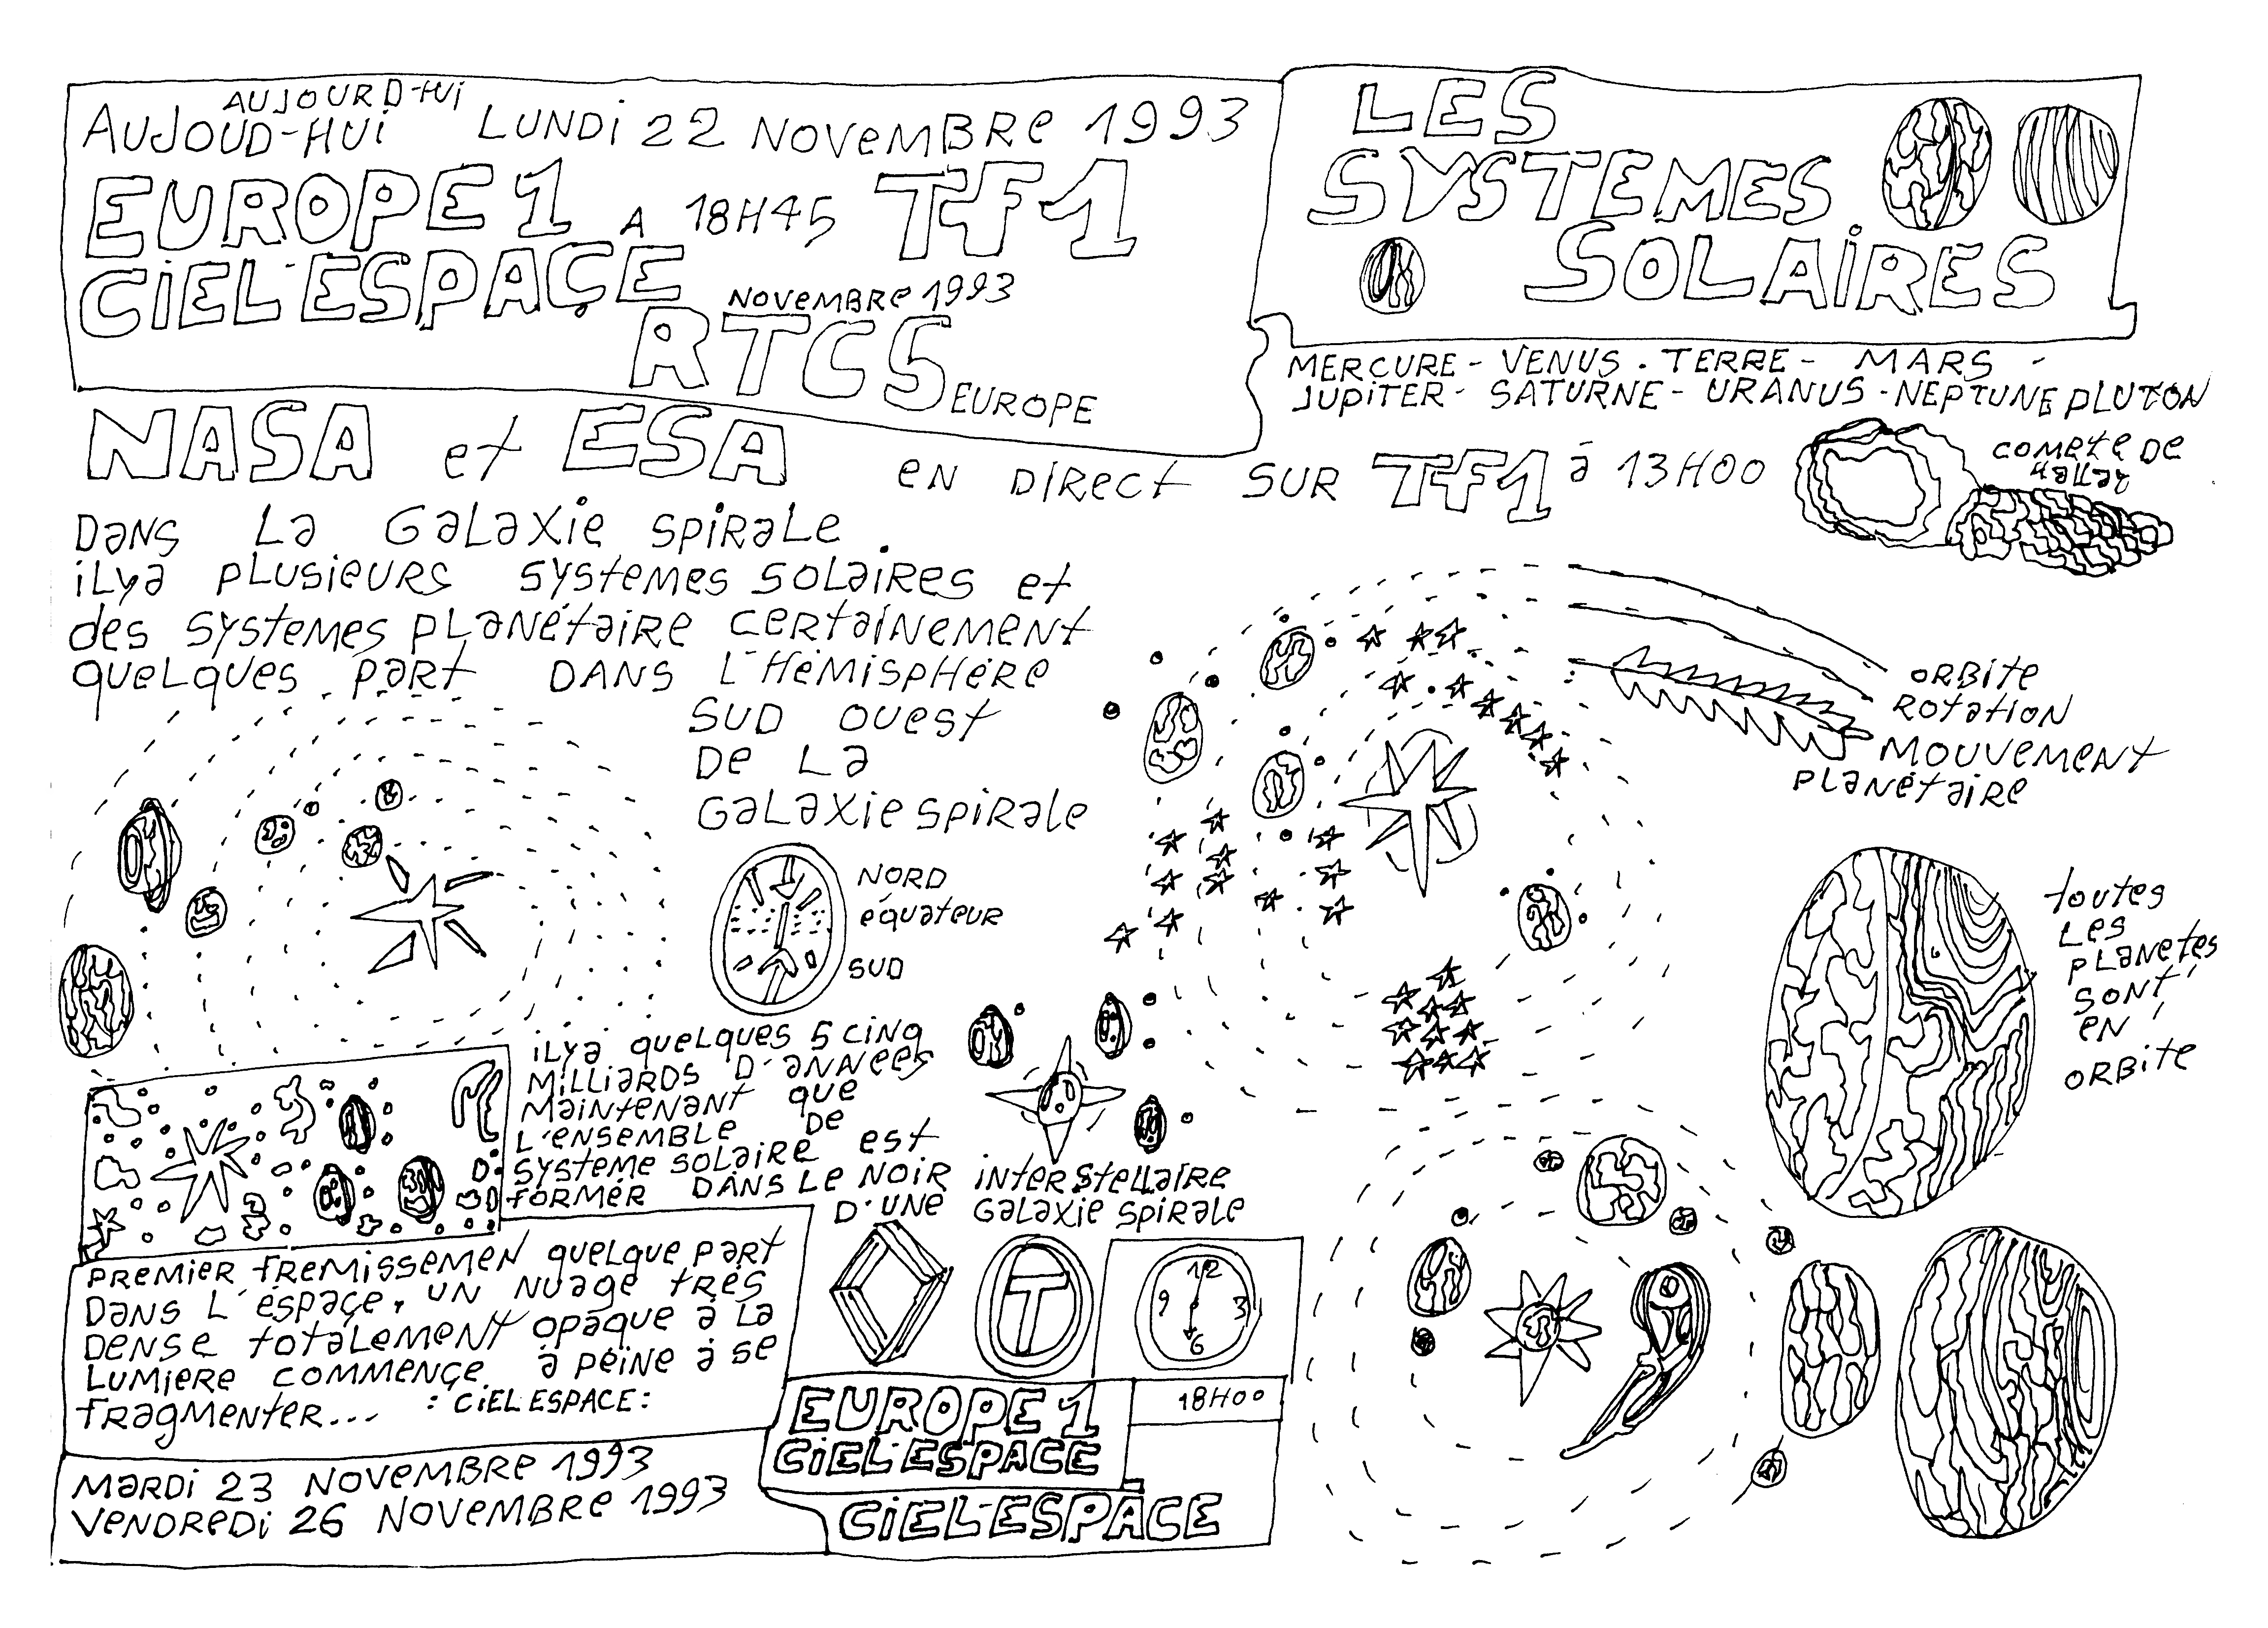 AUJOURD-HUI
AUJOUD-HUI LUNDI 22 NOVEMBRE 1993
EUROPE 1 A 18H45 TF1
CIEL ESPAÇE
NOVEMBRE 1993
RTCS EUROPE
LES
SYSTEMES
SOLAIRES
MERCURE - VENUS . TERRE - MARS -
JUPITER - SATURNE - URANUS - NEPTUNE PLUTON
NASA et ESA EN DIRECT SUR TF1 à 13H00
COMETE DE
DANS LA GALAXIE SPIRALE
ILYA PLUSIEURS SYSTEMES SOLAIRES et
des SYSTEMES PLANÉTAIRE CERTAINEMENT
QUELQUES PART DANS L'HÉMISPHÉRE
SUD OUEST
DE LA
GALAXIE SPIRALE
ORBITE
ROTATION
MOUVEMENT
PLANÉTAIRE
NORD
équateur
SUD
toutes
LES
PLANETES
SONT
EN
ORBITE
ILYA QUELQUES 5 CINQ
MILLIARDS D'ANNEES
MAINTENANT QUE
L'ENSEMBLE DE
SYSTEME SOLAIRE EST
FORMÉR DANS LE NOIR INTERSTELLAIRE
D'UNE GALAXIE SPIRALE
PREMIER FREMISSEMEN QUELQUE PART
DANS L'ÉSPAÇE. UN NUAGE TRÉS
DENSE TOTALEMENT OPAQUE à LA
LUMIERE COMMENÇE à PEINE à SE
FRAGMENTER...
: CIEL ESPACE :
T
12
9 3
6
18H00
EUROPE 1
CIEL ESPACE
CIEL ESPACE
MARDI 23 NOVEMBRE 1993
VENDREDI 26 NOVEMBRE 1993